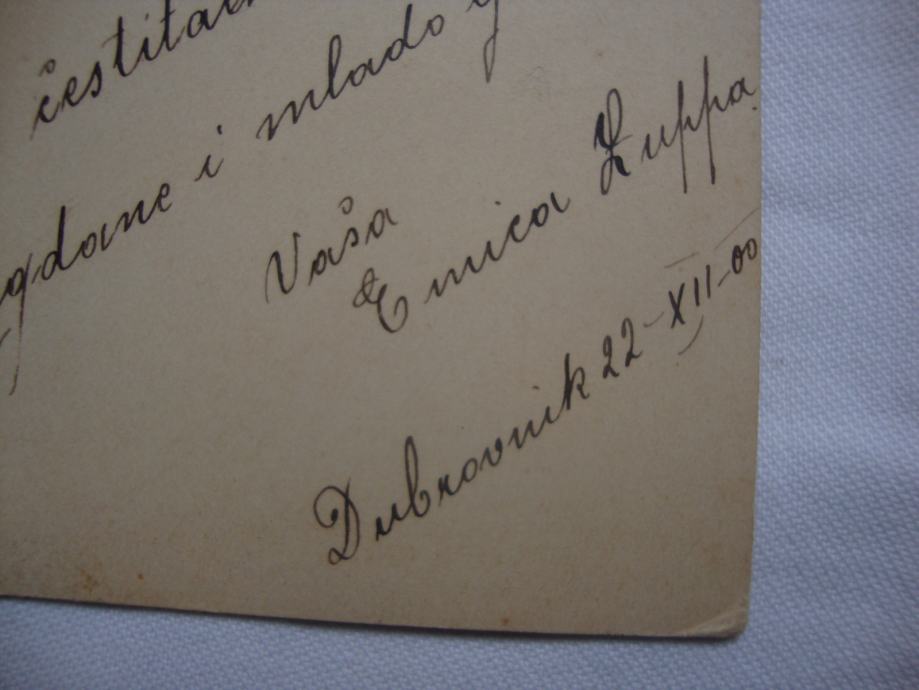 čestitam
gdane i mlado
Vaša
Emica Zuppa
Dubrovnik 22-XII-00